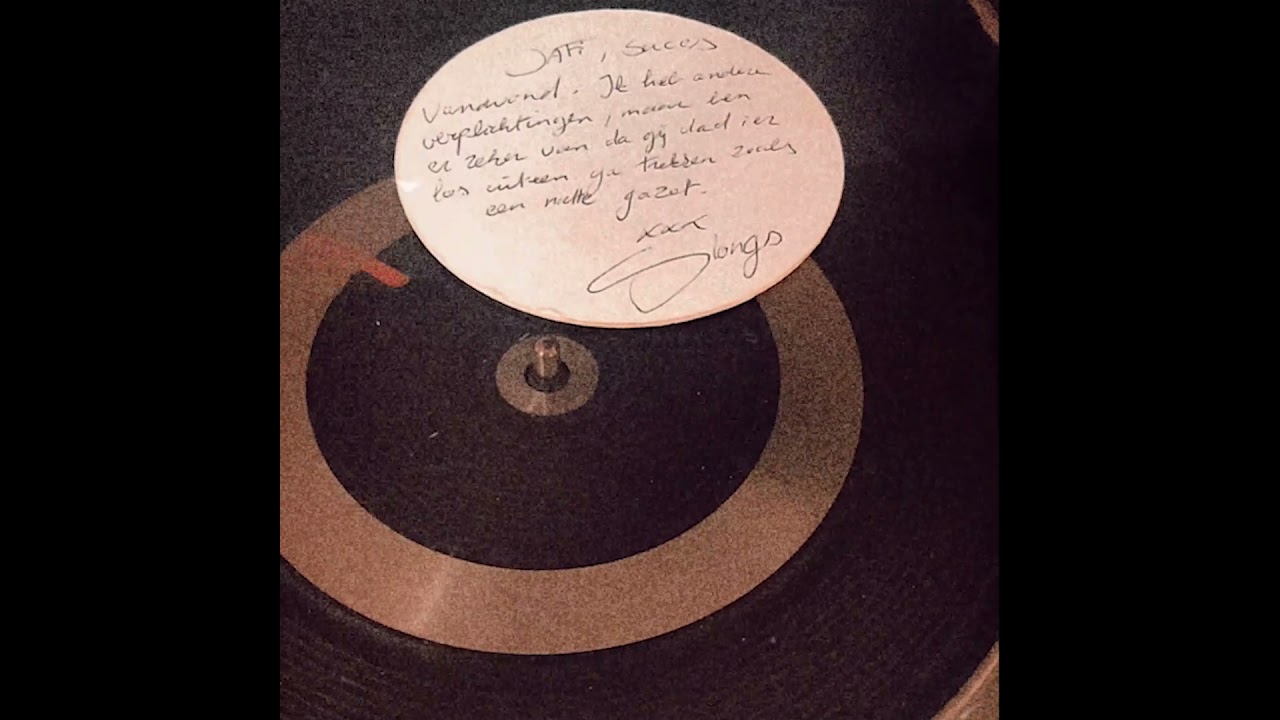 JAFi, succes
vanavond. Ik heb andere
verplichtingen, maar ben
er zeker van da gij dad ier
los uiteen ga trekken zoals
een natte gazet.
xxx
Slongs